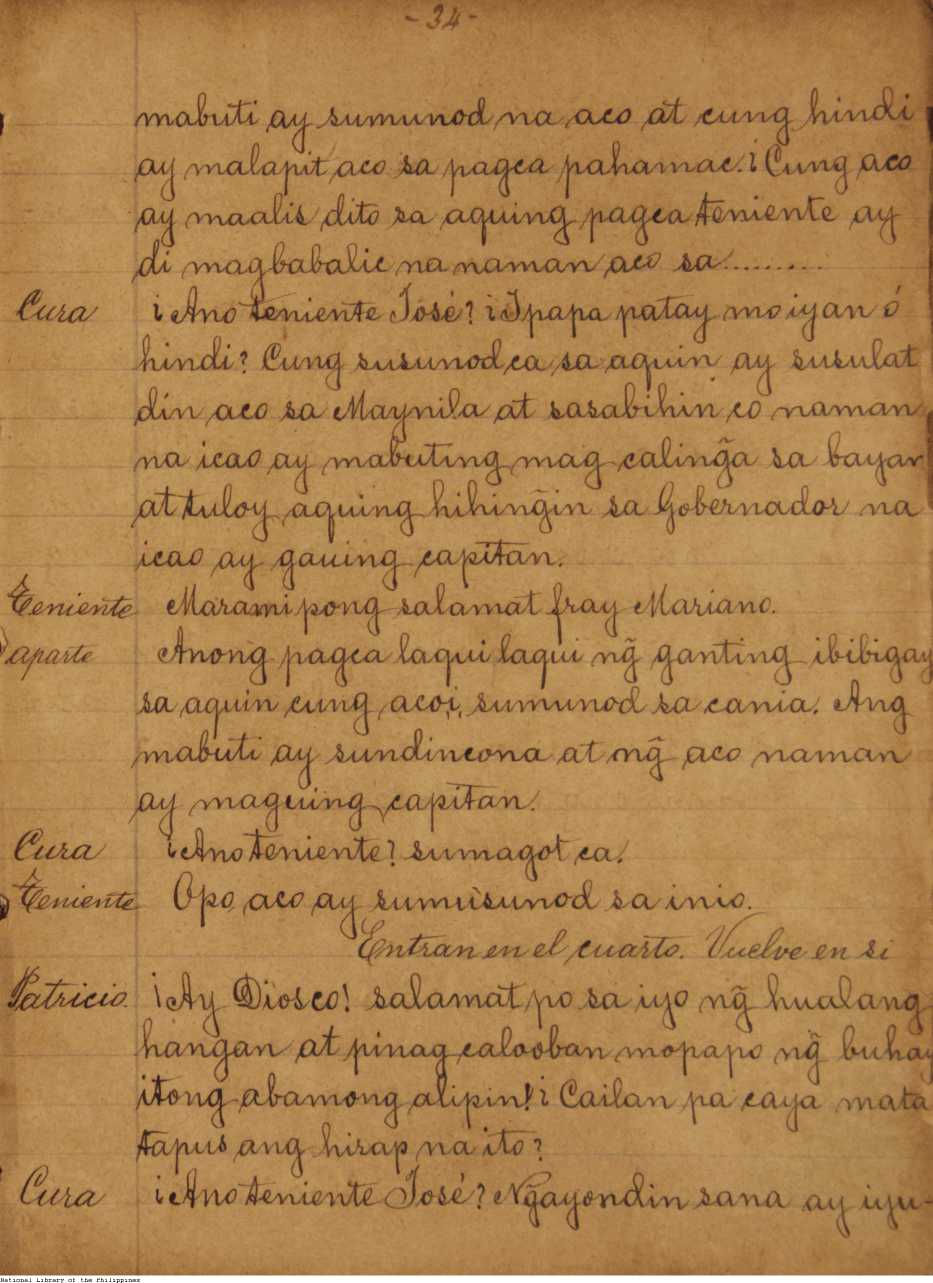 -34-
mabuti ay sumunod na aco at cung hindi
ay malapit aco sa pagca pahamac. ¡Cung aco
ay maalis dito sa aquing pagca teniente ay
di magbabalic na naman aco sa.........
Cura ¡Ano teniente José? ¡Ipapa patay mo iyan ó
hindi? Cung susunod ca sa aquin ay susulat
din aco sa Maynila at sasabihin co naman
na icao ay mabuting mag caling̃a sa bayan
at tuloy aquing hihing̃in sa Gobernador na
icao ay gauing capitan.
Teniente Marami pong salamat fray Mariano.
aparte Anong pagca laqui laqui ng̃ ganting ibibigay
sa aquin cung acoi, sumunod sa cania. Ang
mabuti ay sundincona at ng̃ aco naman
ay maguing capitan.
Cura ¿Ano teniente? sumagot ca.
Teniente Opo, aco ay sumusunod sa inio.
Entran en el cuarto. Vuelve en si
Patricio. ¡Ay Diosco! salamat po sa iyo ng̃ hualang
hangan at pinag calooban mopapo ng̃ buhay
itong abamong alipin! ¡Cailan pa caya mata
tapus ang hirap na ito?
Cura ¡Ano teniente José? Ng̃ayondin sana ay iyu-
National Library of the Philippines